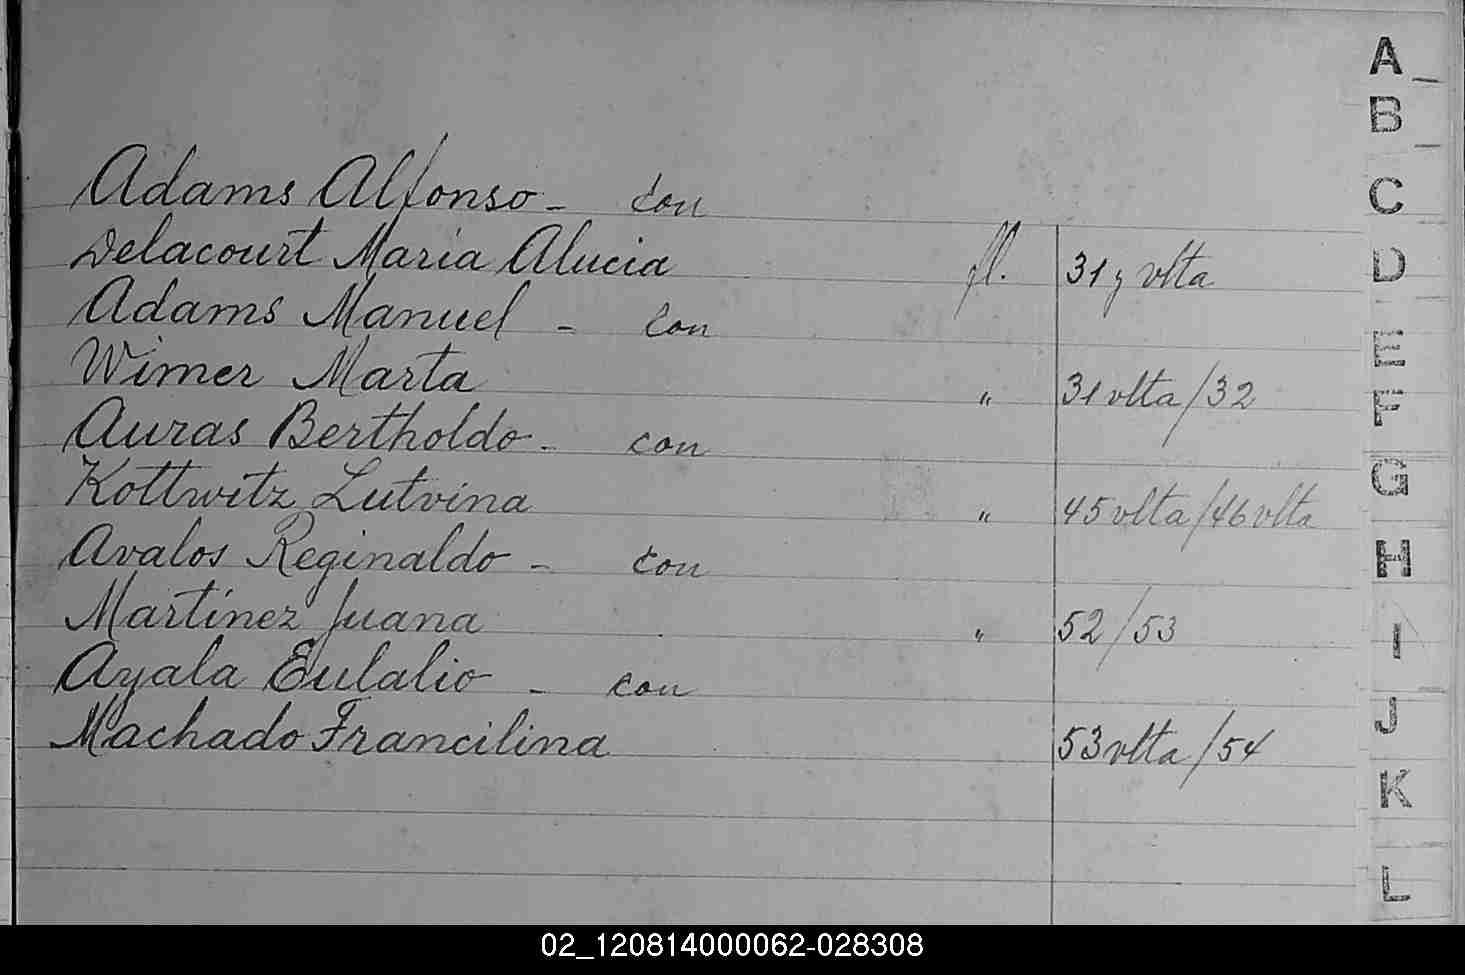 Adams Alfonso - con
Delacourt Maria Alucia fl. 31 y vlta
Adams Manuel - con
Wimer Marta " 31 vlta/32
Auras Bertholdo - con
Kottwitz Lutvina " 45 vlta/46 vlta
Avalos Reginaldo - con
Martinez Juana " 52/53
Ayala Eulalio - con
Machado Francilina 53 vlta/54
A
B
C
D
E
F
G
H
I
J
K
L
02_120814000062-028308